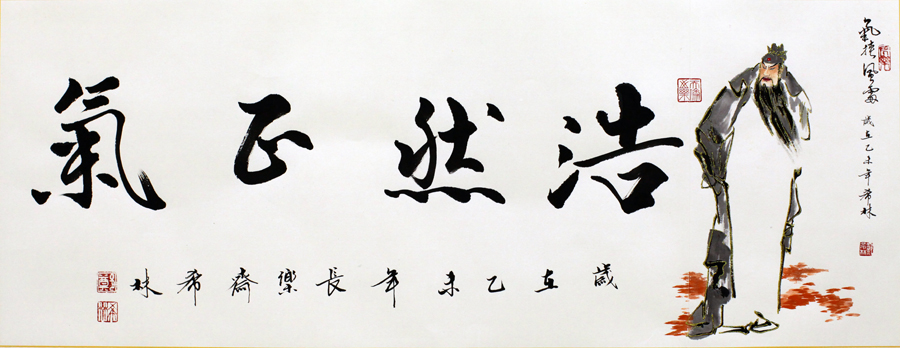 氣 風
歲在乙未年希林
浩然正氣
歲在乙未年長樂齋希林